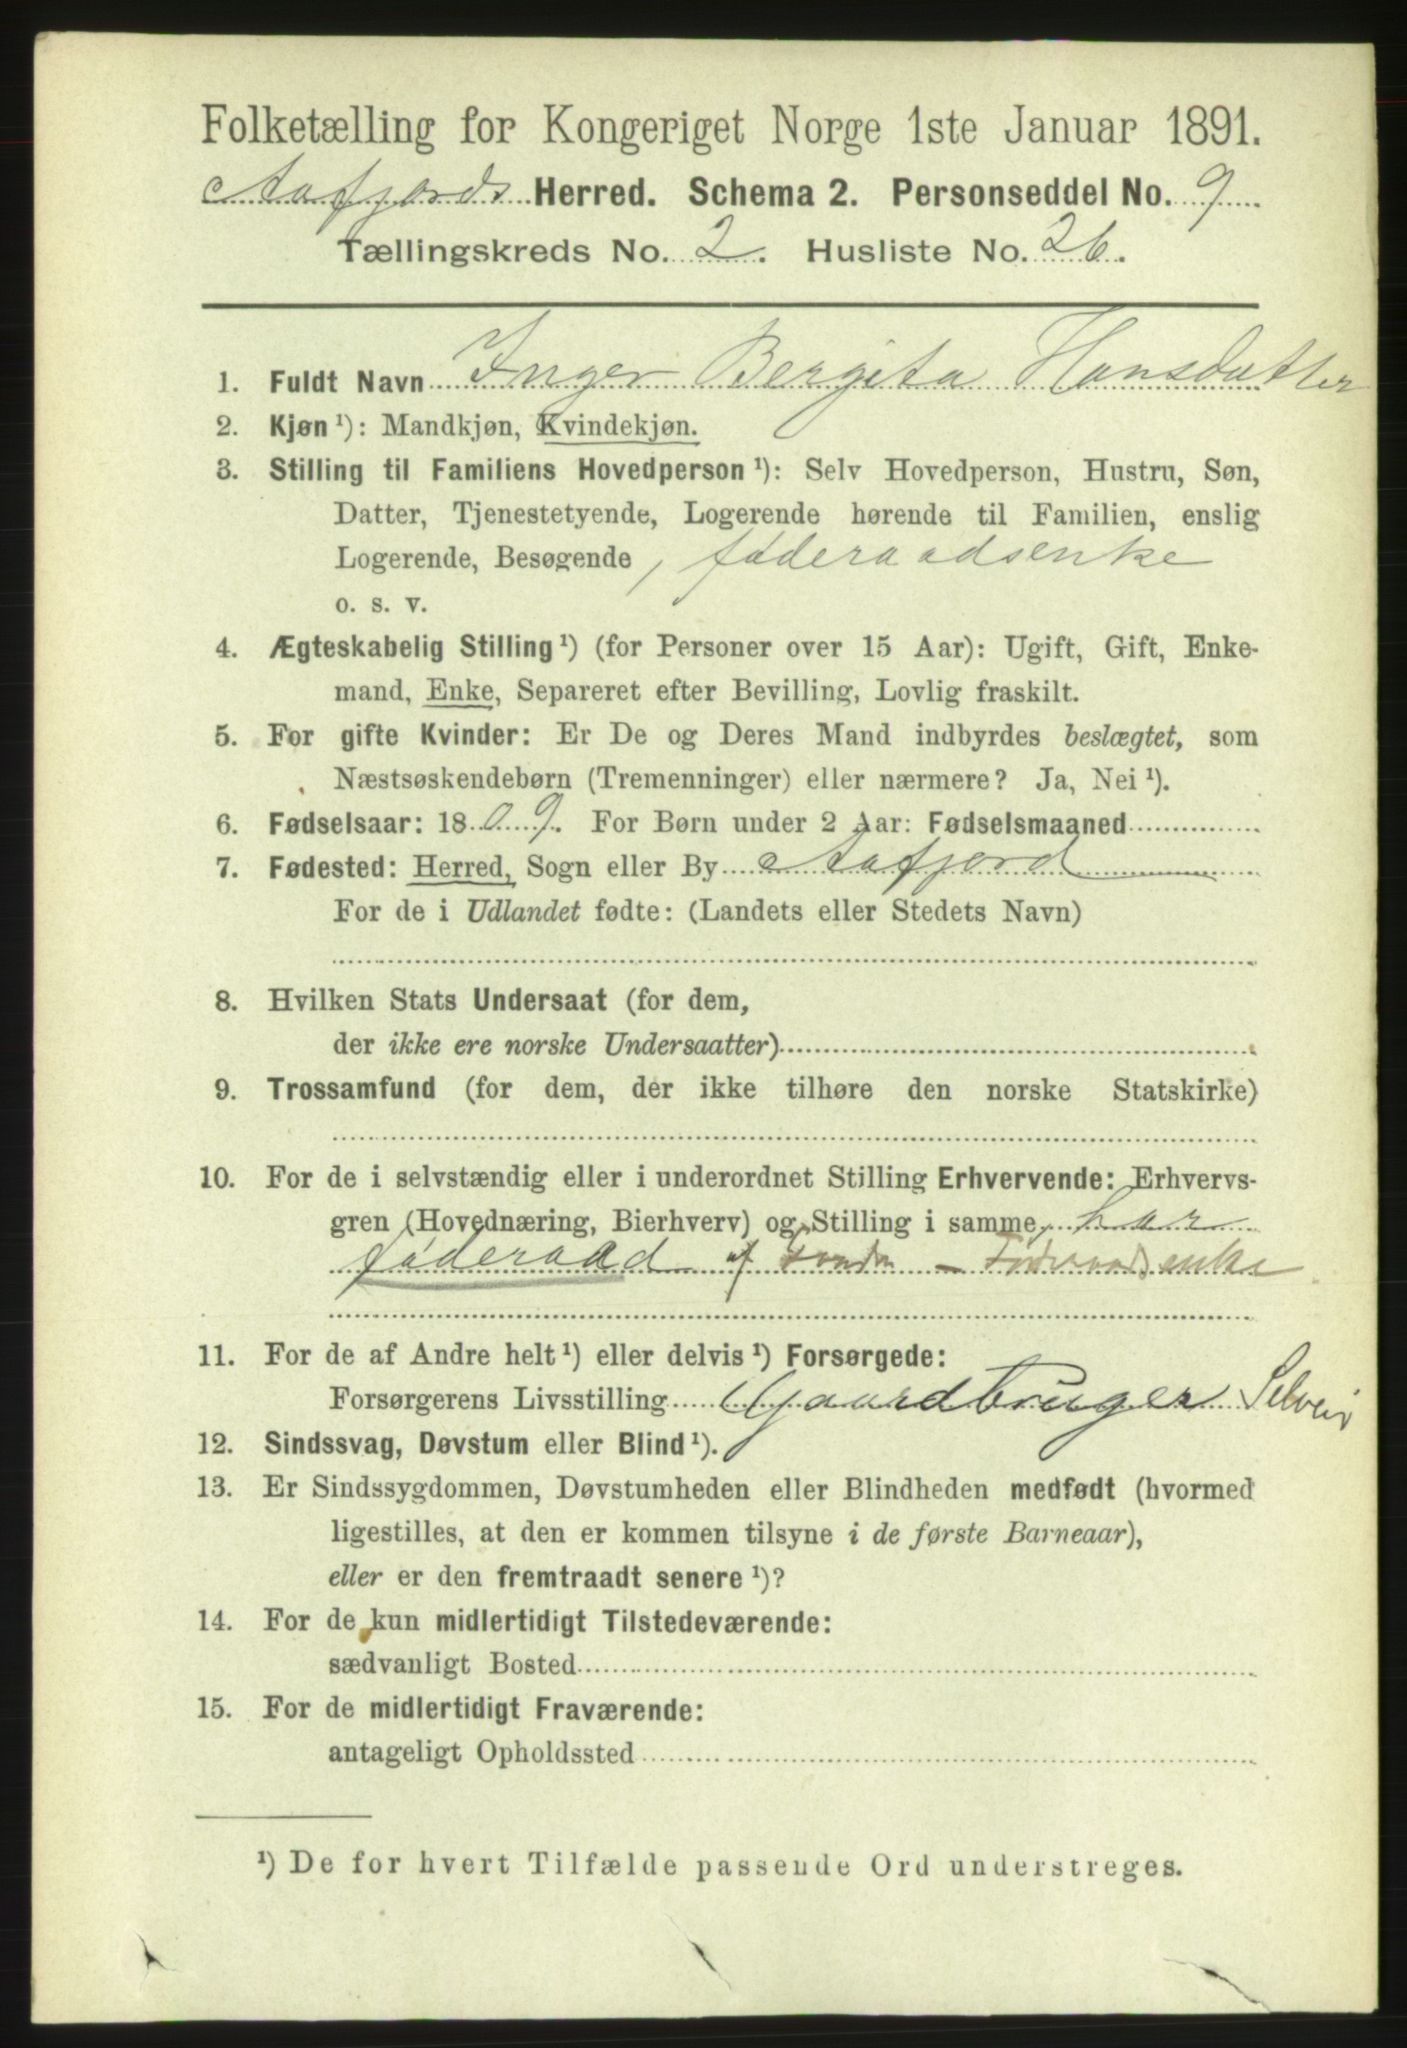 Folketælling for Kongeriget Norge 1ste Januar 1891.
Aafjords Herred. Schema 2. Personseddel No. 9
Tællingskreds No. 2. Husliste No. 26.
1. Fuldt Navn Inger Bergita Hansdatter
2. Kjøn ¹): Mandkjøn, Kvindekjøn.
3. Stilling til Familiens Hovedperson ¹): Selv Hovedperson, Hustru, Søn,
Datter, Tjenestetyende, Logerende hørende til Familien, enslig
Logerende, Besøgende, føderaadsenke
o. s. v.
4. Ægteskabelig Stilling ¹) (for Personer over 15 Aar): Ugift, Gift, Enke-
mand, Enke, Separeret efter Bevilling, Lovlig fraskilt.
5. For gifte Kvinder: Er De og Deres Mand indbyrdes beslægtet, som
Næstsøskendebørn (Tremenninger) eller nærmere? Ja, Nei ¹).
6. Fødselsaar: 1809. For Børn under 2 Aar: Fødselsmaaned
7. Fødested: Herred, Sogn eller By Aafjord
For de i Udlandet fødte: (Landets eller Stedets Navn)
8. Hvilken Stats Undersaat (for dem,
der ikke ere norske Undersaatter)
9. Trossamfund (for dem, der ikke tilhøre den norske Statskirke)
10. For de i selvstændig eller i underordnet Stilling Erhvervende: Erhvervs-
gren (Hovednæring, Bierhverv) og Stilling i samme, har
føderaad af - Føderaadsenke
11. For de af Andre helt ¹) eller delvis ¹) Forsørgede:
Forsørgerens Livsstilling Gaardbruger Selveir
12. Sindssvag, Døvstum eller Blind ¹).
13. Er Sindssygdommen, Døvstumheden eller Blindheden medfødt (hvormed
ligestilles, at den er kommen tilsyne i de første Barneaar),
eller er den fremtraadt senere ¹)?
14. For de kun midlertidigt Tilstedeværende:
sædvanligt Bosted
15. For de midlertidigt Fraværende:
antageligt Opholdssted
¹) De for hvert Tilfælde passende Ord understreges.